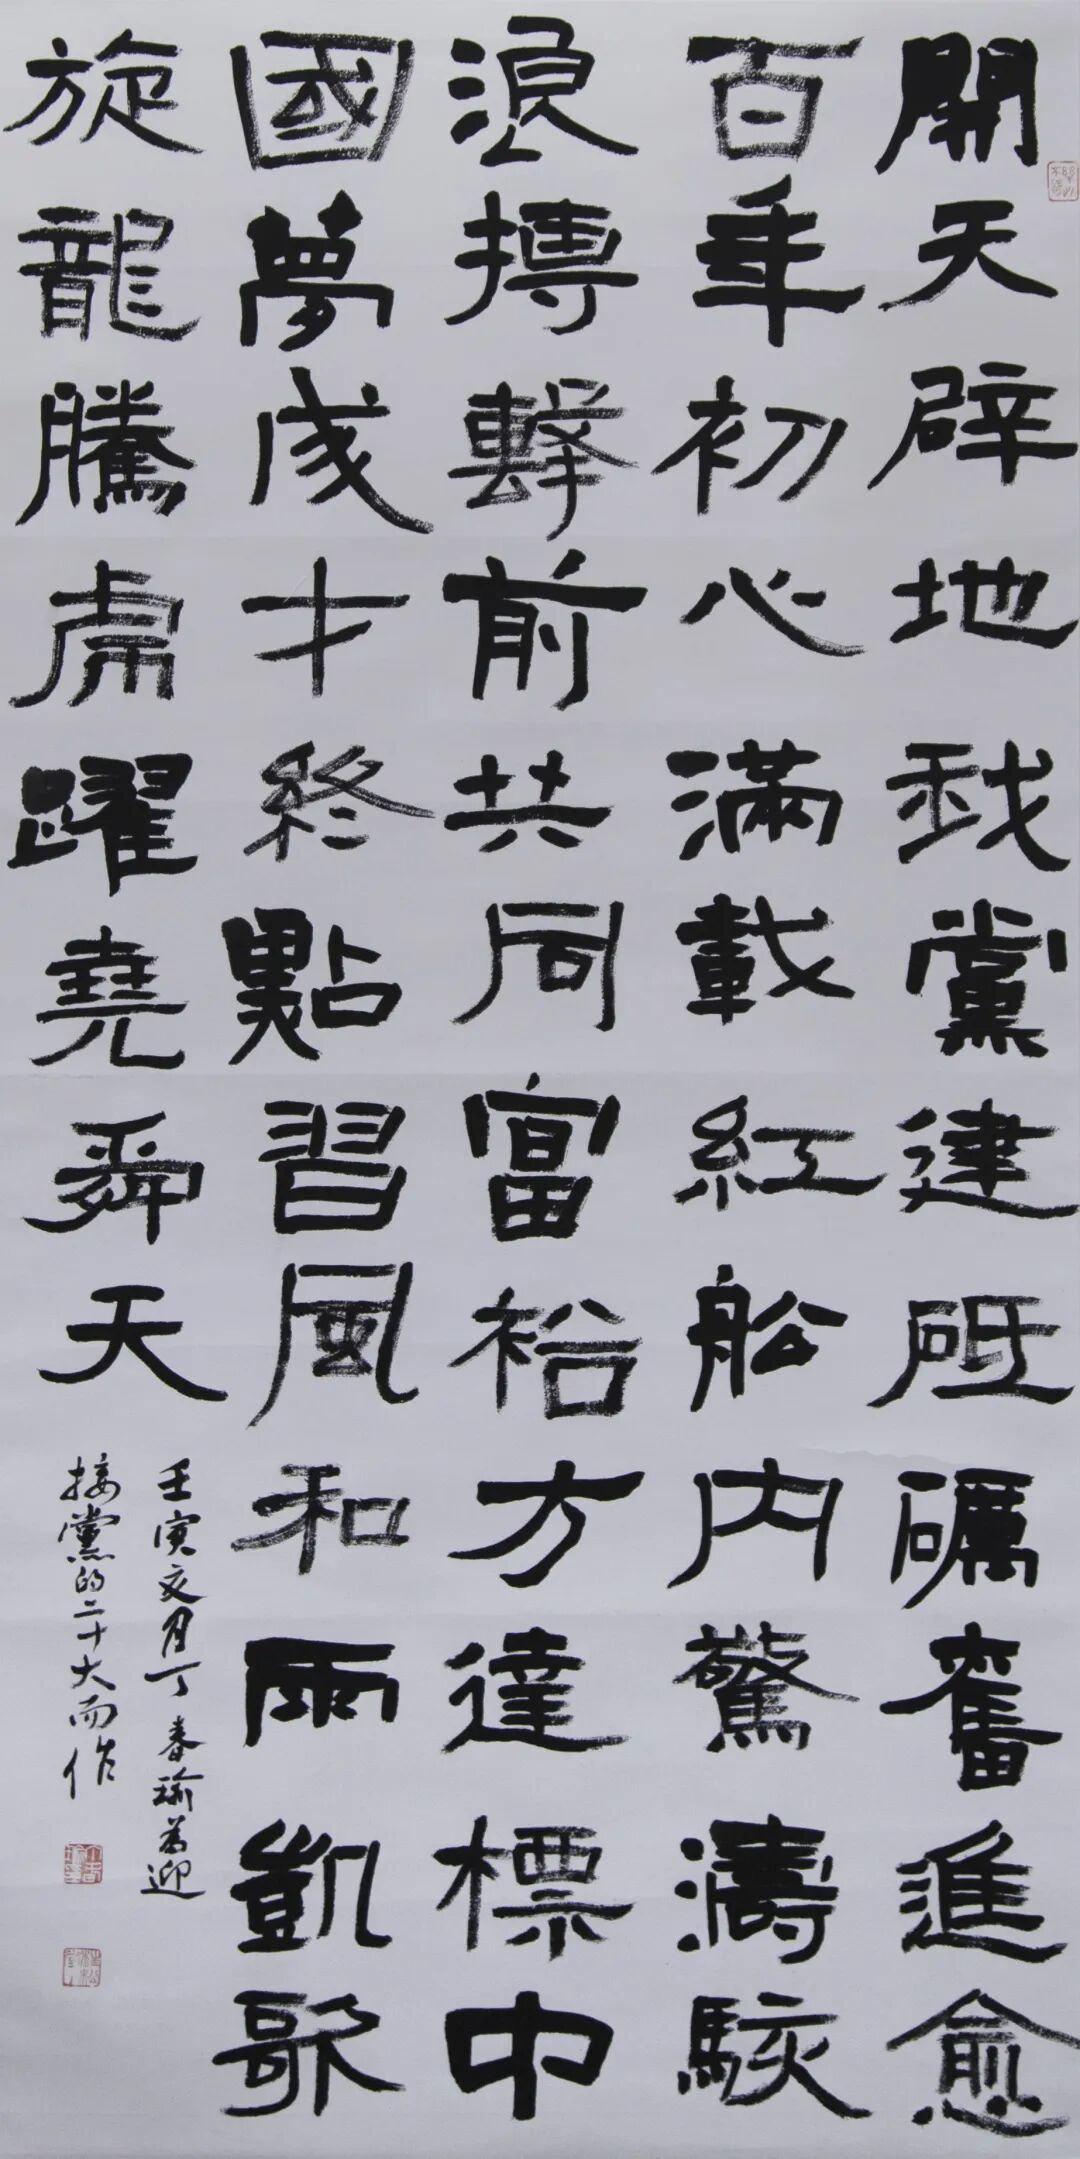 開天辟地我黨建砥礪奮進愈
百年初心滿載紅船內驚濤駭
浪搏擊前共同富裕方達標中
國夢成才終點習風和雨凱歌
旋龍騰虎躍堯舜天
壬寅文月丁春瑜为迎
接黨的二十大而作